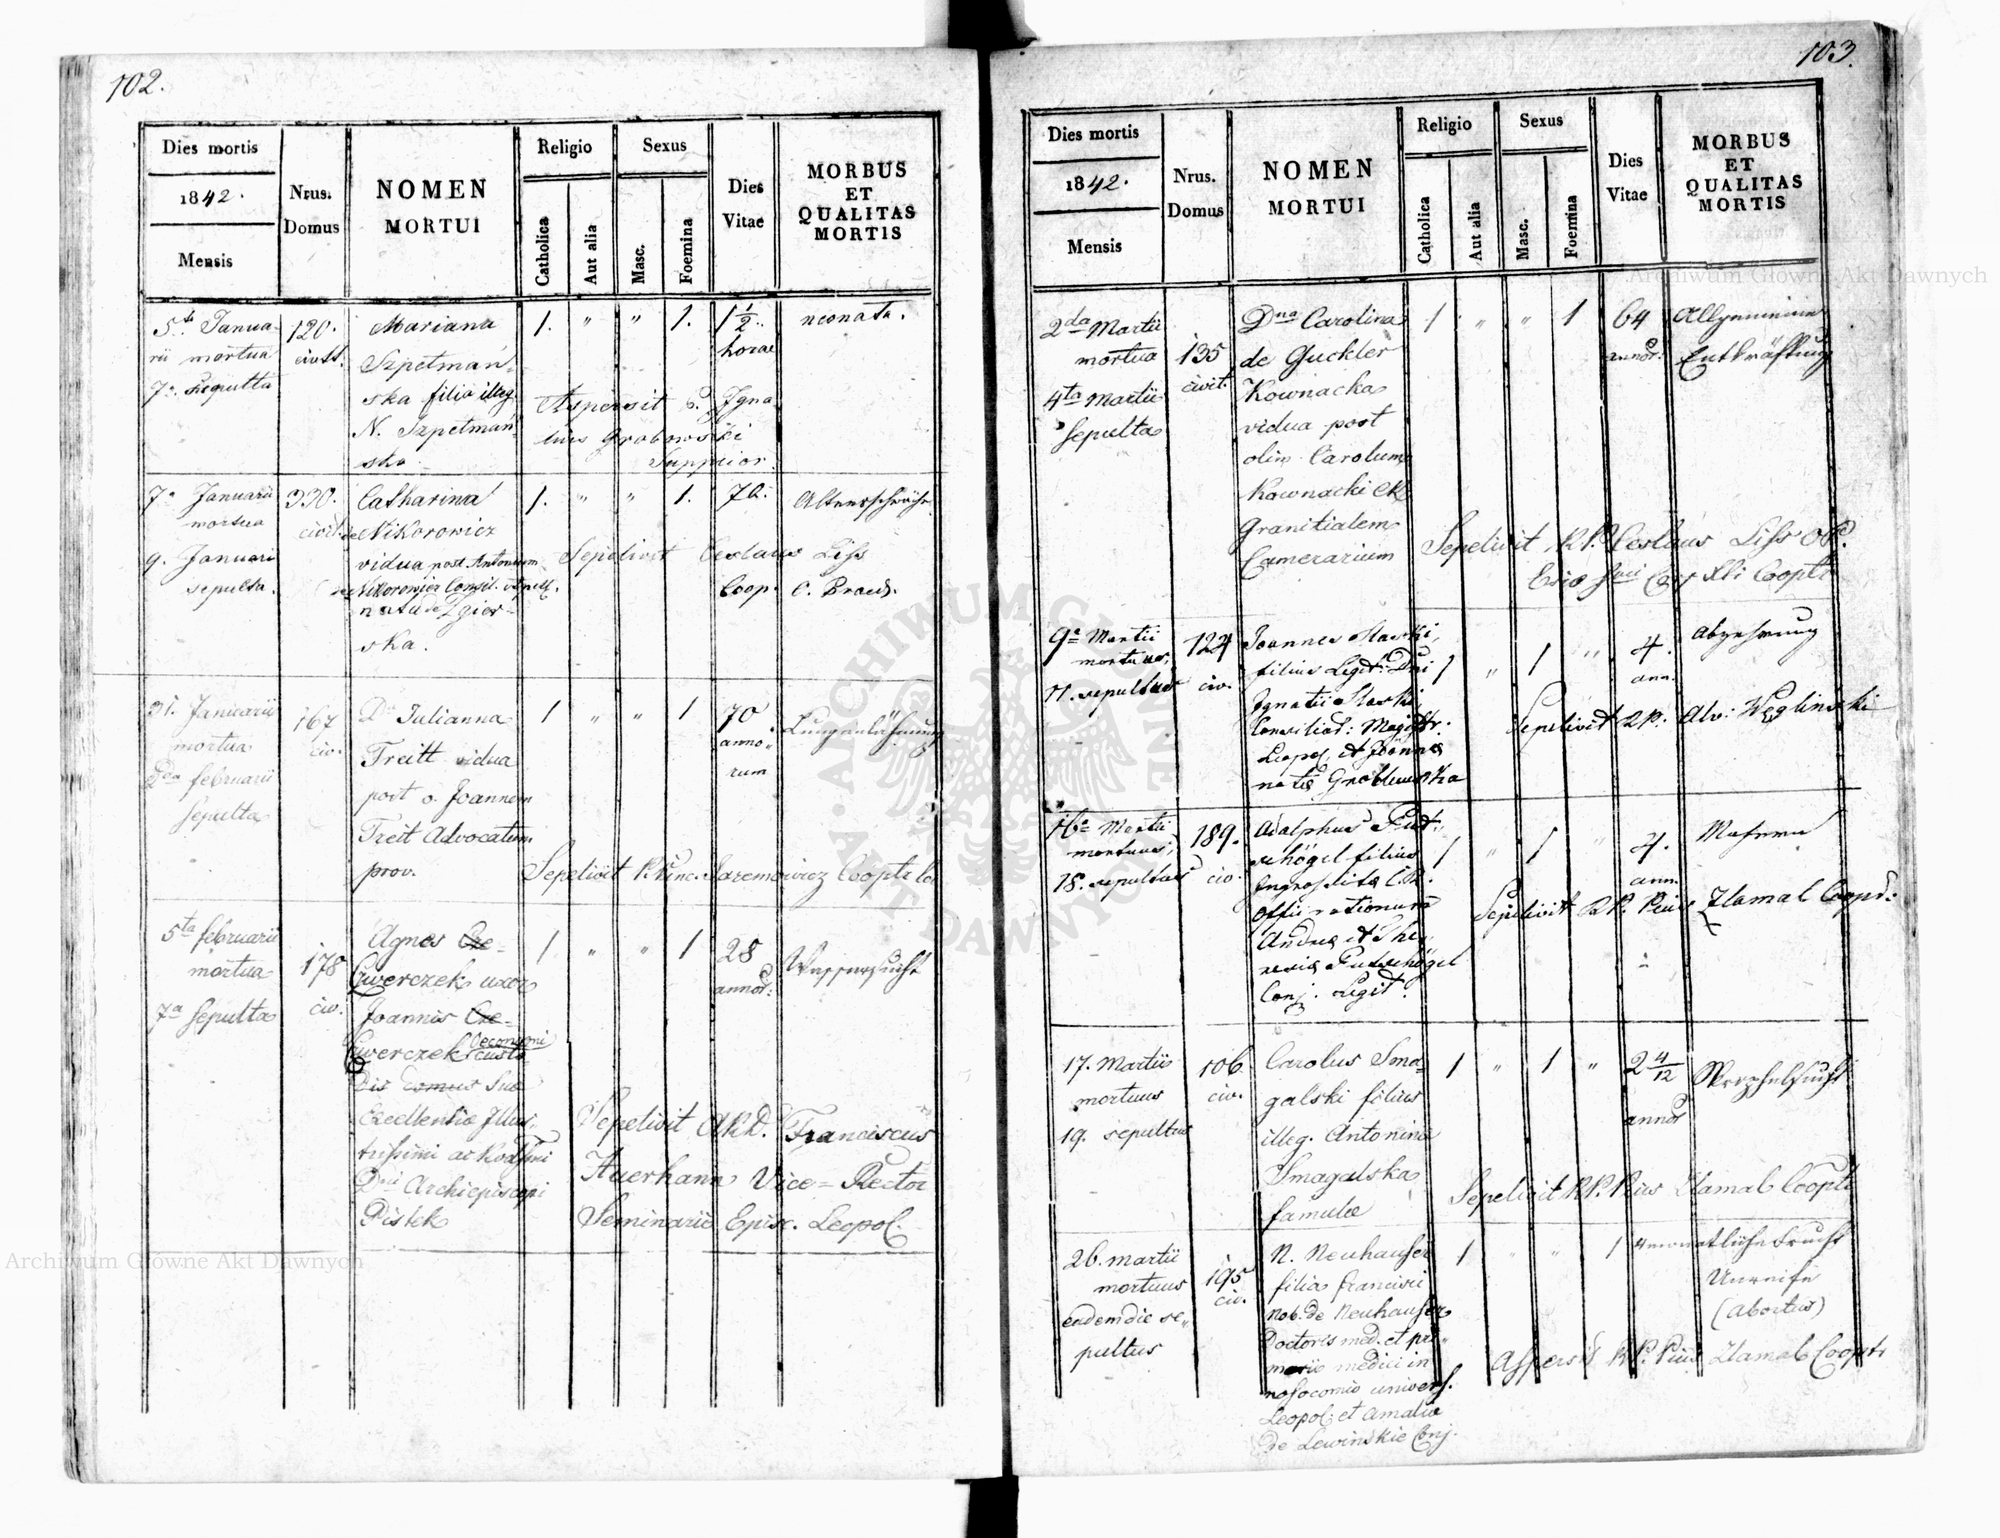 102.
Dies mortis
1842.
Mensis
Nrus.
Domus
NOMEN
MORTUI
Religio
Catholica
Aut alia
Sexus
Masc.
Foemina
Dies
Vitae
MORBUS
ET
QUALITAS
MORTIS
5ta Janua-
rii mortua
7a sepulta
120.
civit.
Mariana
Szpetmań-
ska filia illeg.
N. Szpetmań-
ska.
1. " " 1.
1 1/2
horae
neonata.
Aspersit P. Igna-
tius Grabowski
Supprior.
7a Januarii
mortua
9. Januarii
sepulta.
330.
civit.
Catharina
de Nikorowicz
vidua post Antonium
Nikorowicz Consil. Appell.
nata de Zgier-
ska.
1. " " 1.
76.
Altersschwäche
Sepelivit Ceslaus Liss
Coop. O. Praed.
31. Januarii
mortua
2da februarii
Sepulta
167
civ.
Da Julianna
Treitt vidua
post o. Joannem
Treit Advocatum
prov.
1 " " 1
70
anno-
rum
Lungenlähmung
Sepelivit
5ta februarii
mortua
7a Sepulta
178
civ.
Agnes Cze-
Cwerczek uxor
Joannis Cze-
Cwerczek custo
Oeconomi
dis domus Suae
Excellentiae Illus-
trissimi ac
Dni Archiepiscopi
Pistek
1 " " 1
28
annor.
Wassersucht
Sepelivit ARD. Franciscus
Auerhann Vice-Rector
Seminarii Episc. Leopol.
103.
Dies mortis
1842.
Mensis
Nrus.
Domus
NOMEN
MORTUI
Religio
Catholica
Aut alia
Sexus
Masc.
Foemina
Dies
Vitae
MORBUS
ET
QUALITAS
MORTIS
2da Martii
mortua
4ta Martii
Sepulta
135
civit.
Dna Carolina
de Guckler
Kownacka
vidua post
olim Carolum
Kownacki
Granitialem
Camerarium
1 " " 1
64
annor.
Allgemeine
Entkräftung
Sepelivit RP. Ceslaus Liss OP.
Coopr
9a Martii
mortuus,
11. sepultus
124
civ.
Joannes Slaski,
filius Legit. Dni
Ignatii Slaski,
Consiliar: Magistr.
Leopol. et Joanna
nata
1 " 1 "
4.
ann.
Abzehrung
Sepelivit RP: Alo: Węglinski
16a Martii
mortuus,
18. sepultus
189.
civ.
Adalphus Put-
schögel filius
Ingrossista C.R.
Offii rationum
Andrea et The-
resia Putschögel
Conj. Legit.
1 " 1 "
4.
ann.
Masern
Sepelivit RP. Pius Zlamal Coopr.
17. Martii
mortuus
19. sepultus
106
civ.
Carolus Sma-
galski filius
illeg. Antonina
Smagalska
famulae
1 " 1 "
2 4/12
annor
Skrophelsucht
Sepelivit RP. Pius Zlamal Coopr
26. martii
mortuus
eademdie se-
pultus
195
civ.
N. Neuhauser
filia francisci
Nob. de Neuhauser
Doctoris med. et pri-
mario medici in
nosocomio univers.
Leopol. et Amaliae
de Lewinskie Conj.
1 " " 1
4 monatliche Frucht
Unreife
(abortus)
Aspersit RP. Pius Zlamal Coopr
Archiwum Główne Akt Dawnych
Archiwum Główne Akt Dawnych
ARCHIWUM GŁÓWNE AKT DAWNYCH